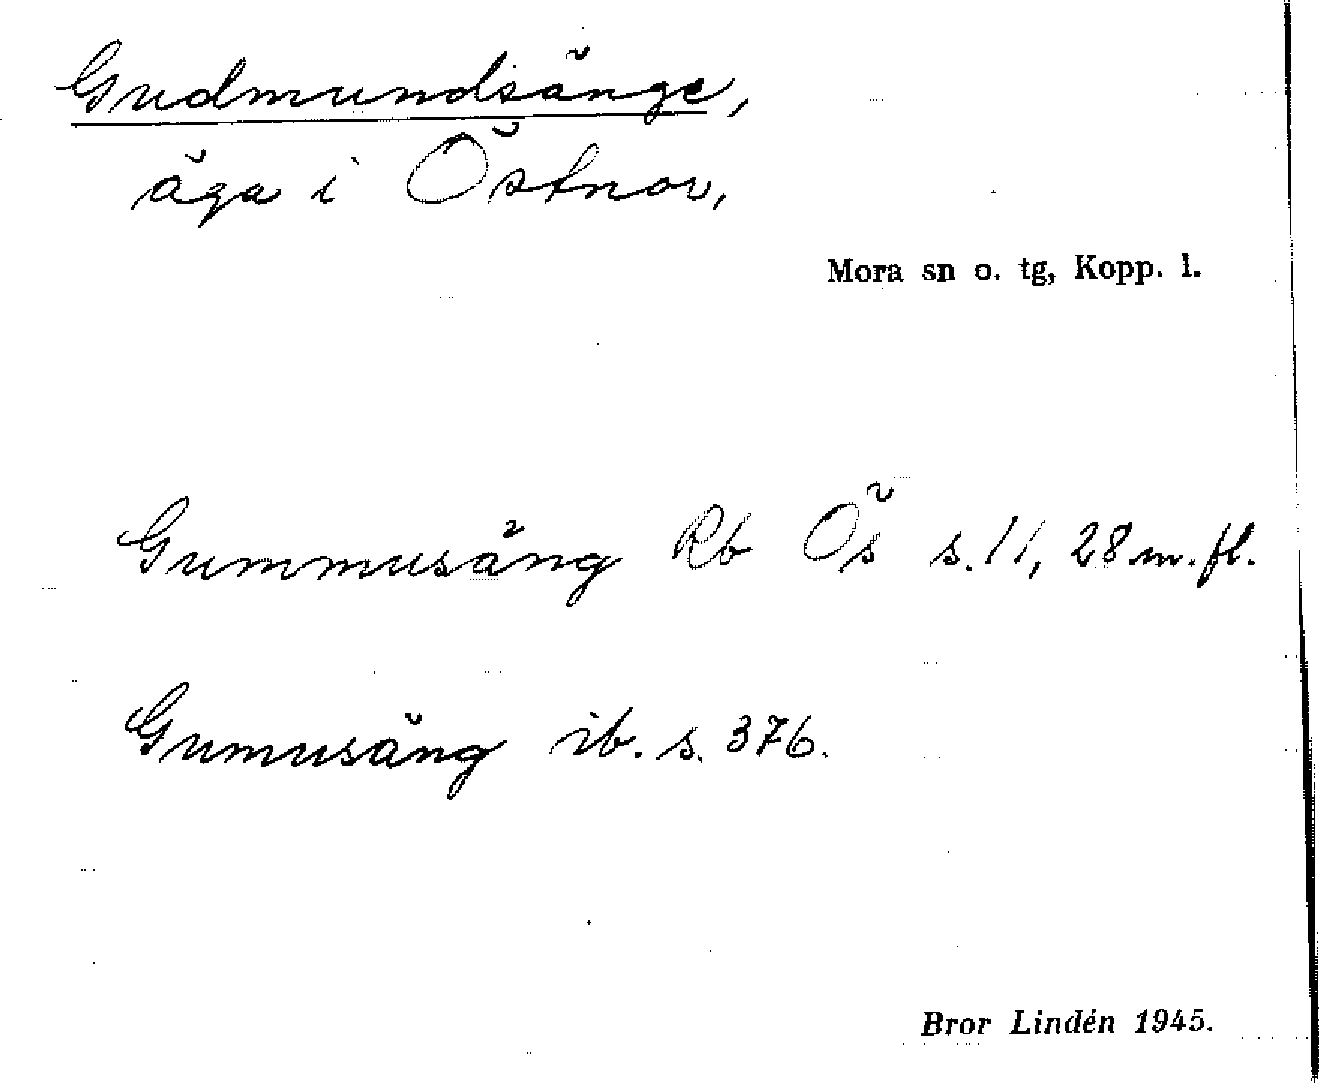 Gudmundsänge,
äga i Östnor,
Mora sn o. tg, Kopp. l.
Gummusäng Rb Ös s. 11, 28 m. fl.
Gumusäng ib. s. 376.
Bror Lindén 1945.